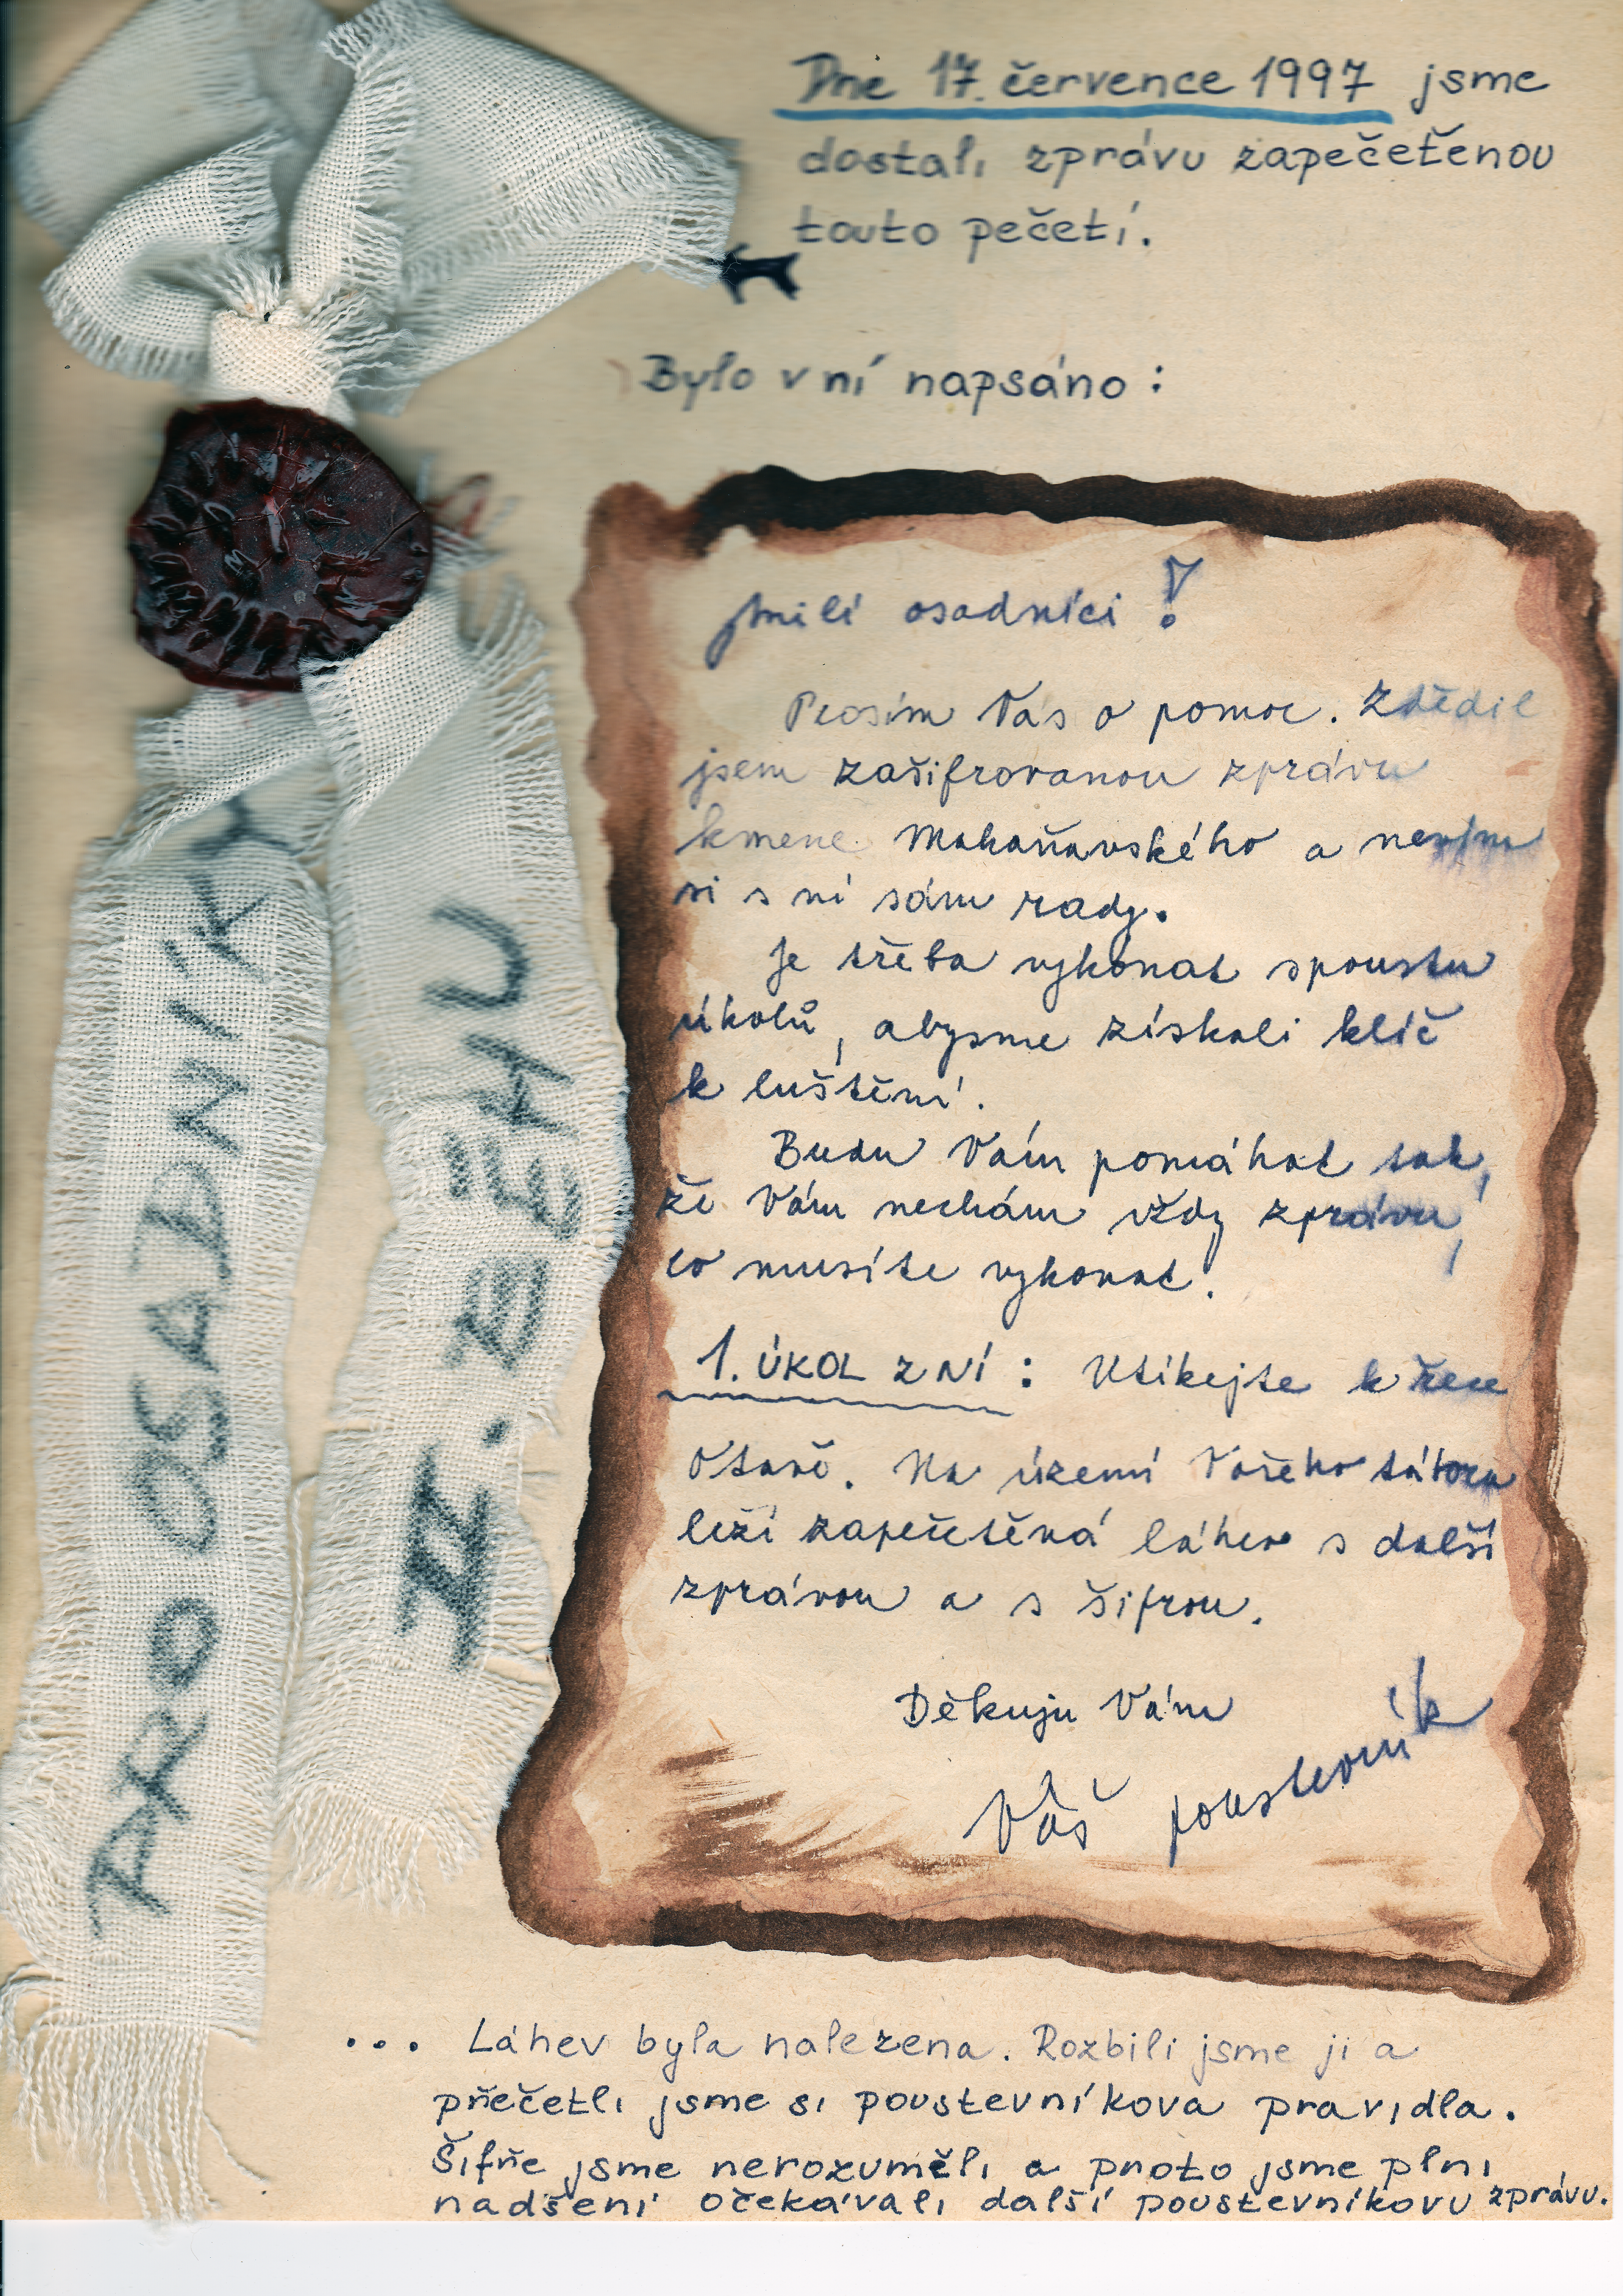 Dne 17. července 1997 jsme
dostali zprávu zapečetěnou
touto pečetí.
Bylo v ní napsáno:
Milí osadníci!
Prosím Vás o pomoc. Zdědil
jsem zašifrovanou zprávu
kmene Mohaňavského a nevím
si s ní sám rady.
Je třeba vykonat spoustu
úkolů, abysme získali klíč
k luštění.
Budu Vám pomáhat tak,
že Vám nechám vždy zprávu,
co musíte vykonat.
1. ÚKOL ZNÍ: Utíkejte k řece
Otavě. Na území Vašeho tábora
leží zapečetěná láhev s další
zprávou a s šifrou.
Děkuju Vám
Váš poustevník
PRO OSADNÍKY
II. BĚHU
... Láhev byla nalezena. Rozbili jsme ji a
přečetli jsme si poustevníkova pravidla.
Šifře jsme nerozuměli a proto jsme plni
nadšení očekávali další poustevníkovu zprávu.